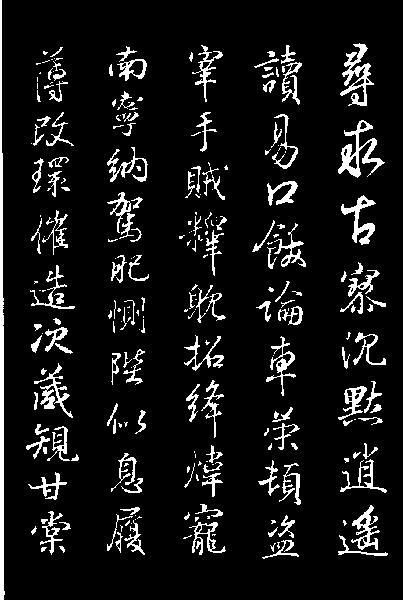 尋求古寮沉默逍遙
讀易口飫論車策頓盜
宰手賊糧躭招絳煒寵
南寧納駕肥惻陛似息履
薄改環催造次箴規甘棠